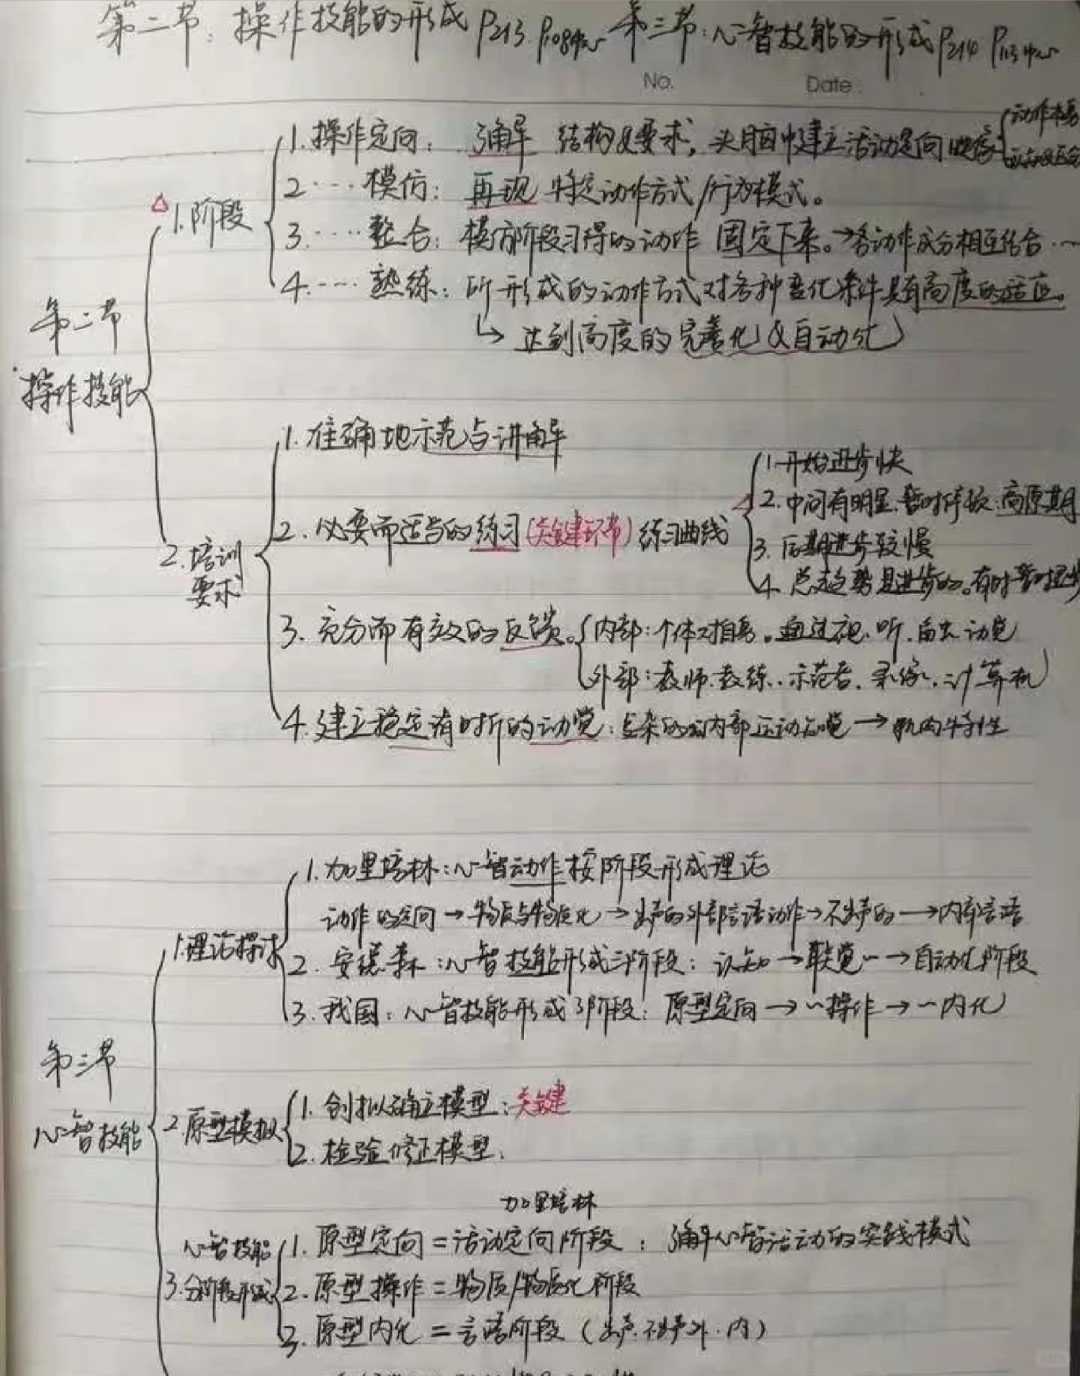 第二节:操作技能的形成 P213 P108 第三节:心智技能的形成 P214 P113
No. Date:
1.操作定向:了解 结构及要求,头脑中建立活动定向映像
2.… 模仿:再现 特定动作方式/行为模式。
△ 1.阶段
3.…… 整合:模仿阶段习得的动作 固定下来。→各动作成分相互结合…
4.…… 熟练:所形成的动作方式对各种变化条件具有高度的适应。
↳ 达到高度的完善化&自动化
第二节
操作技能
1.准确地示范与讲解
2.必要而适当的练习(关键环节) 练习曲线
△
1.开始进步快
2.中间有明显、暂时停顿:高原期
3.后期进步较慢
4.总趋势是进步的。有时暂时退步
2.培训
要求
3.充分而有效的反馈。
内部:个体对自身。通过视、听、触、动觉
外部:教师、教练、示范者、录像、计算机
4.建立稳定清晰的动觉:复杂的内部运动知觉→肌肉
1.加里培林:心智动作按阶段形成理论
动作的定向→物质与物质化→出声的外部言语动作→不出声的→内部言语
1.理论探讨
2.安德森:心智技能形成三阶段:认知→联觉〃→自动化阶段
3.我国:心智技能形成3阶段:原型定向→〃操作→〃内化
第三节
心智技能
2.原型模拟
1.创拟确立模型:关键
2.检验修正模型.
加里培林
心智技能
3.分阶段形成
1.原型定向=活动定向阶段:了解心智活动的实践模式
2.原型操作=物质/物质化阶段
3.原型内化=言语阶段(出声.不出声外.内)